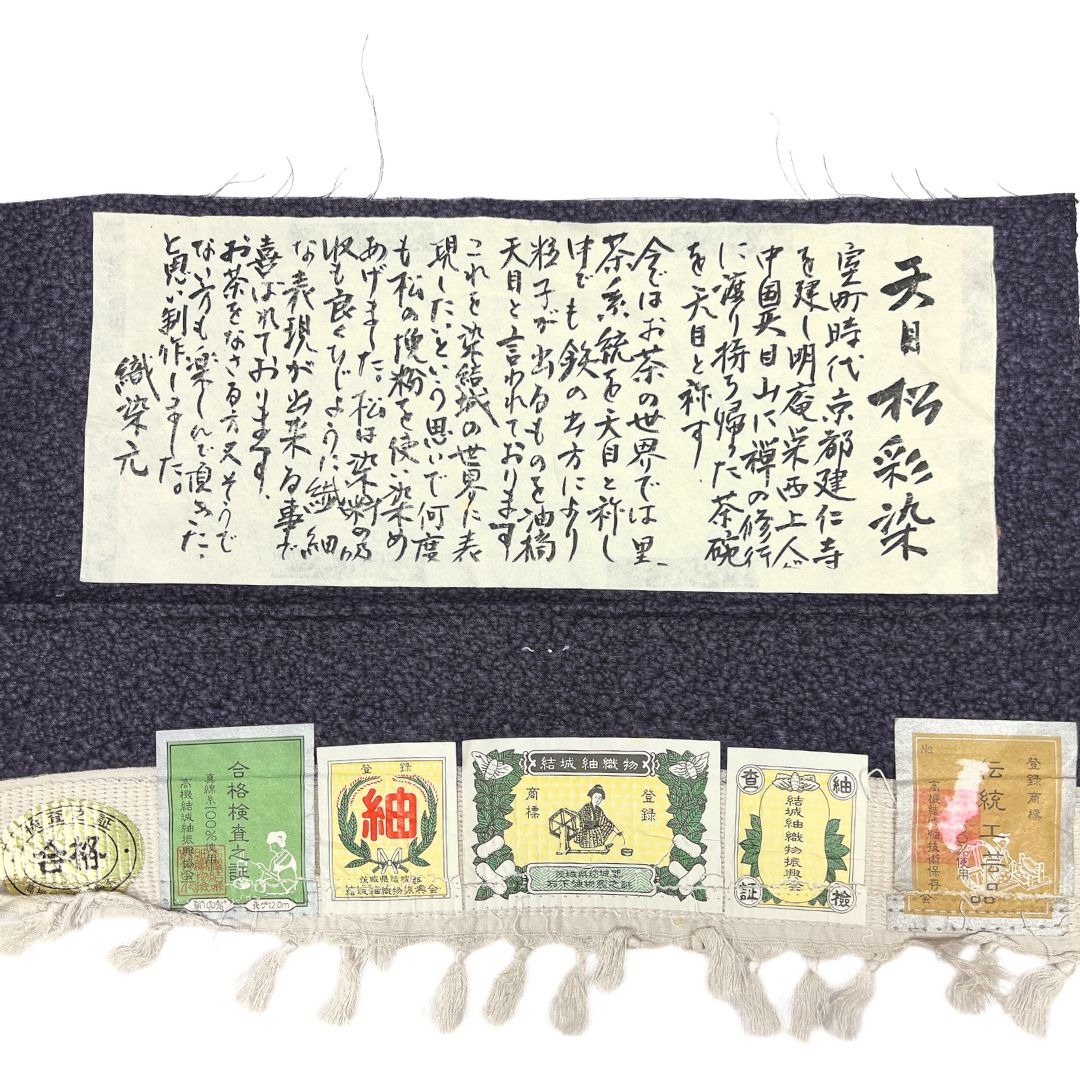 天目松彩染
室町時代京都建仁寺
を建し明庵栄西上人が
中国天目山に禅の修行
に渡り持ち帰った茶碗
を天目と称す
今ではお茶の世界では黒
茶系統を天目と称し
中でも鉄の出方により
粒子が出るものを油滴
天目と言われております
これを染結城の世界に表
現したいという思いで何度
も松の挽粉を使い染め
あげました。松は染料の吸
収も良くひじょうに繊細
な表現が出来る事で
喜ばれております。
お茶をなさる方又そうで
ない方も楽しんで頂きた
と思い制作しました。
織染元
之証
合格
合格検査之証
真綿糸100%使用
高機結城紬振興協会
長さ12.0m
登録
紬
茨城県結城郡
結城紬織物振興会
結城紬織物
商標
登録
茨城県結城郡
石下
之証
査
紬
結城紬織物振興会
証
検
No.
登録商標
伝統工芸品
使用
高機結城紬技術保存会